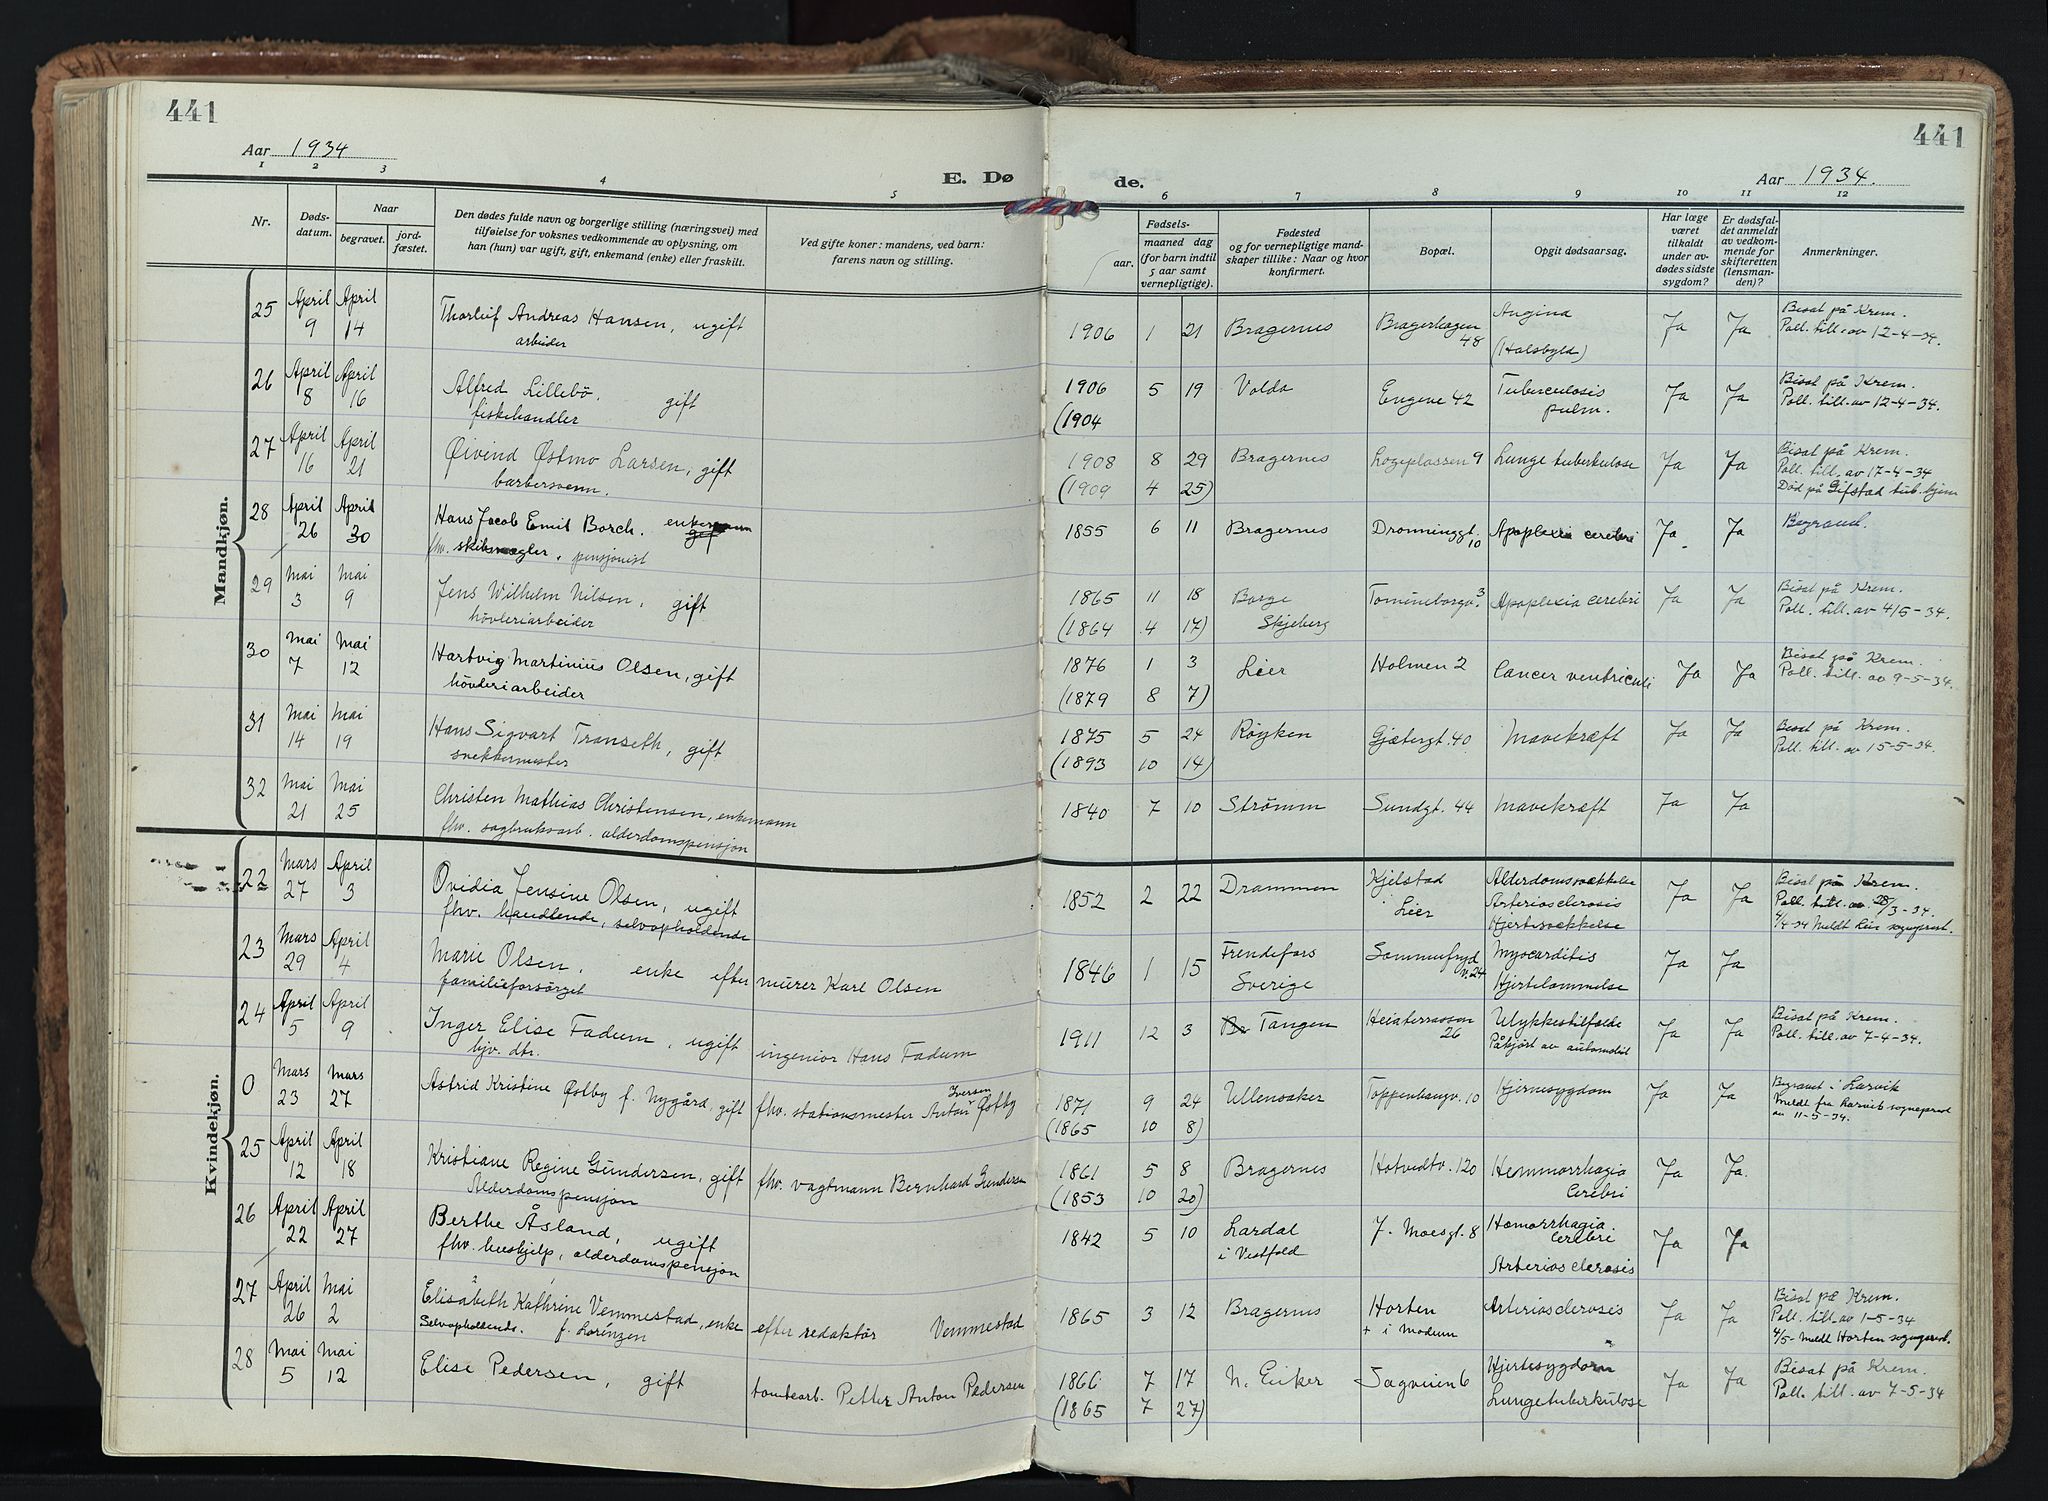 441
Aar 1934
E. Dø
1 2 3 4 5
Nr.
Døds-
datum.
Naar
begravet.
jord-
fæstet.
Den dødes fulde navn og borgerlige stilling (næringsvei) med
tilføielse for voksnes vedkommende av oplysning, om
han (hun) var ugift, gift, enkemand (enke) eller fraskilt.
Ved gifte koner: mandens, ved barn:
farens navn og stilling.
441
de.
Aar 1934.
6 7 8 9 10 11 12
Fødsels-
aar.
maaned dag
(for barn indtil
5 aar samt
vernepligtige).
Fødested
og for vernepligtige mand-
skaper tillike: Naar og hvor
konfirmert.
Bopæl.
Opgit dødsaarsag.
Har læge
været
tilkaldt
under av-
dødes sidste
sygdom?
Er dødsfal-
det anmeldt
av vedkom-
mende for
skifteretten
(lensman-
den)?
Anmerkninger.
Mandkjøn.
25 April 9 April 14 Thorleif Andreas Hansen, ugift
arbeider
1906 1 21 Bragernes Bragerhagen 48 Angina
(Halsbyld) Ja Ja Bisat på Krem.
Poll. till. av 12-4-34.
26 April 8 April 16 Alfred Lillebö, gift
fiskehandler
1906 5 19 Volda Engene 42 Tuberculosis
pulm. Ja Ja Bisat på Krem.
Poll. till. av 12-4-34.
(1904
27 April 16 April 21 Øivind Østmo Larsen, gift
barbersvenn.
1908 8 29 Bragernes Logeplassen 9 Lunge tuberkulose Ja Ja Bisat på Krem.
Poll. till. av 17-4-34
(1909 4 25) Død på Gifstad tub. hjem
28 April 26 April 30 Hans Jacob Emil Borch. enkemann
fhv. skibsmægler, pensjonist
1855 6 11 Bragernes Dronninggt. 10 Apoplexia cerebri Ja Ja Begravd.
29 Mai 3 Mai 9 Jens Wilhelm Nilsen, gift
hövleriarbeider
1865 11 18 Borge Tomineborgv. 3 Apoplexia cerebri Ja Ja Bisat på Krem.
Poll. till. av 4/5-34.
(1864 4 17) Skjeberg
30 Mai 7 Mai 12 Hartvig Martinius Olsen, gift
hövleriarbeider
1876 1 3 Lier Holmen 2 Cancer ventriculi Ja Ja Bisat på Krem.
Poll. till. av 9-5-34.
(1879 8 7)
31 Mai 14 Mai 19 Hans Sigvart Transeth, gift
snekkermester
1875 5 24 Röyken Gjætergt. 40 Mavekræft Ja Ja Bisat på Krem.
Poll. till. av 15-5-34.
(1893 10 14)
32 Mai 21 Mai 25 Christen Mathias Christensen, enkemann
fhv. sagbruksarb. alderdomspensjon
1840 7 10 Strömm Sundgt. 44 Mavekræft Ja Ja
Kvindekjøn.
22 Mars 27 April 3 Ovidia Jensine Olsen, ugift
fhv. handlende, selvopholdende
1852 2 22 Drammen Kjelstad
Lier Alderdomssvekkelse
Arteriosclerosis
Hjertesvekkelse Ja Ja Bisat på Krem.
Poll. till. av 28/3-34.
4/4-34 Meldt Lier sogneprest.
23 Mars 29 April 4 Marie Olsen, enke efter
familieforsörget
murer Karl Olsen
1846 1 15 Frendefors
Sverige Sommerfryd v. 24 Myocarditis
Hjertelammelse Ja Ja
24 April 5 April 9 Inger Elise Fadum, ugift
hjv. dtr.
ingeniör Hans Fadum
1911 12 3 Tangen Heiaterrassen 26 Ulykkestilfælde
Påkjört av automobil Ja Ja Bisat på Krem.
Poll. till. av 7-4-34.
0 Mars 23 Mars 27 Astrid Kristine Østby f. Nygård, gift
fhv. stationsmester Anton Iversen Østby
1871 9 24 Ullensaker Toppenhaugv. 10 Hjernesygdom Ja Ja Begravet i Larvik
meldt fra Larvik sogneprest
av 11-5-34.
(1865 10 8)
25 April 12 April 18 Kristiane Regine Gundersen, gift
Alderdomspensjon
fhv. vagtmann Bernhard Gundersen
1861 5 8 Bragernes Hotvedtv. 120 Hemmorrhagia
Cerebri Ja Ja.
(1853 10 20)
26 April 22 April 27 Berthe Åsland, ugift
fhv. hushjelp, alderdomspensjon
1842 5 10 Lardal
i Vestfold J. Moesgt. 8 Hæmorrhagia
cerebri
Arteriosclerosis Ja Ja
27 April 26 Mai 2 Elisabeth Kathrine Vemmestad, enke
Selvopholdende. f. Lorenzen
efter redaktör Vemmestad
1865 3 12 Bragernes Horten
+ i Modum Arteriosclerosis Ja Ja Bisat på Krem.
Poll. till. av 1-5-34
4/5- meldt Horten sogneprest.
28 Mai 5 Mai 12 Elise Pedersen, gift
tomtearb. Petter Anton Pedersen
1866 7 17 N. Eiker Sagveien 6 Hjertesygdom
Lungetuberkulose Ja Ja Bisat på Krem.
Poll. till. av 7-5-34
(1865 7 27)